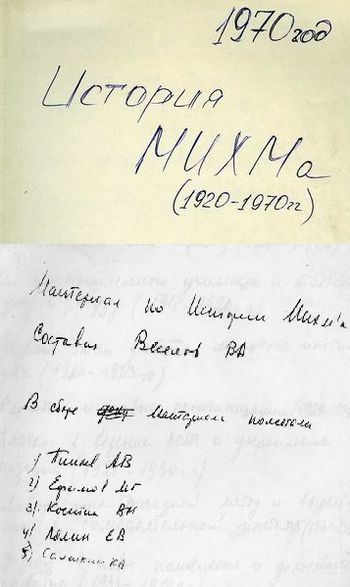 1970 год
История
МИХМа
(1920-1970гг)
Материал по Истории Михм'а
Составил Веселов ВА
В сборе материала помогали
1) АВ
2) Ефремов МГ
3) Костин ВН
4) Лапин ЕВ
5) КА